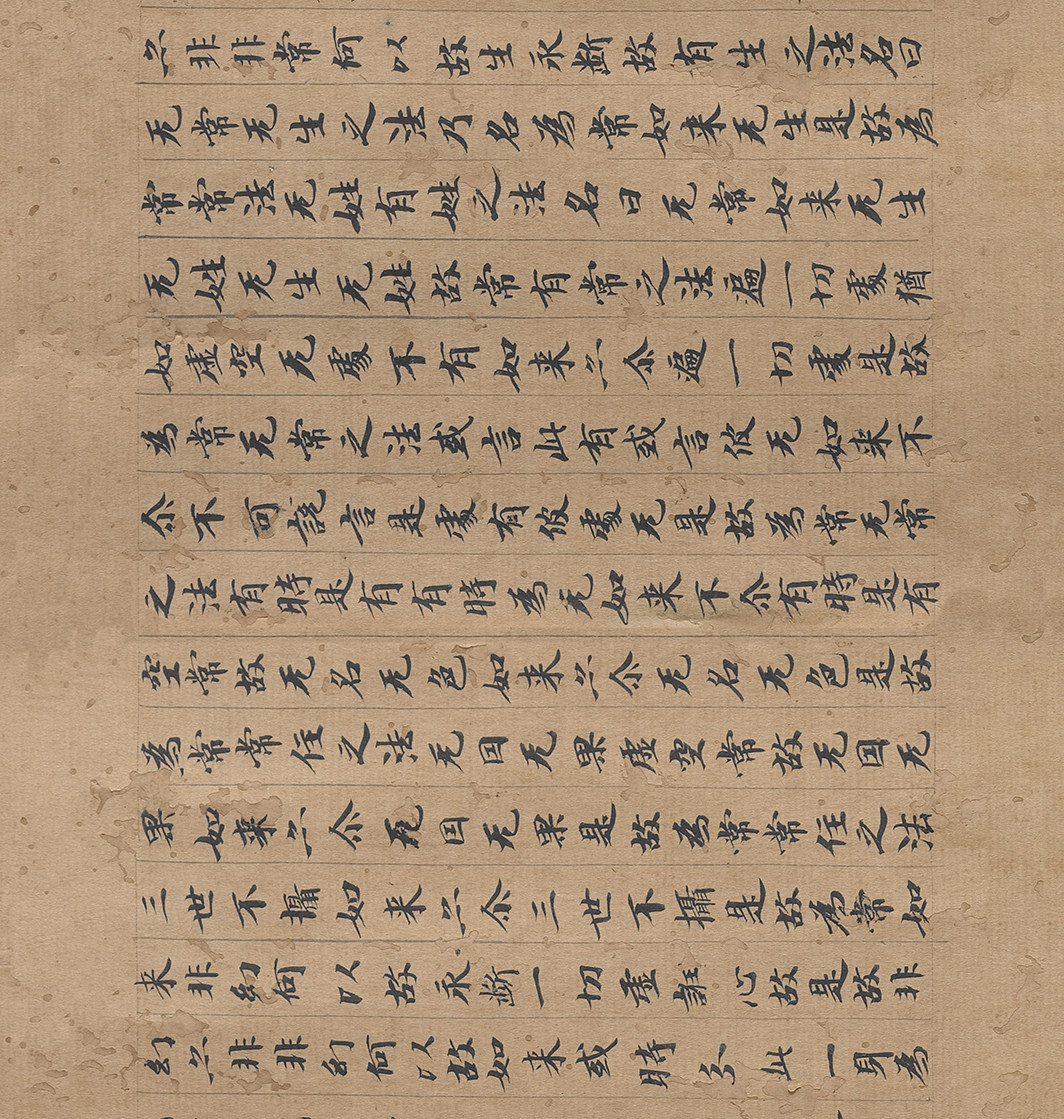 亦非非常何以故生永斷故有生之法名曰
无常无生之法乃名為常如来无生是故為
常常法无姓有姓之法名曰无常如来无生
无姓无生无姓故常有常之法遍一切處猶
如虚空无處不有如来亦尒遍一切處是故
為常无常之法或言此有或言彼无如来不
尒不可說言是處有彼處无是故為常无常
之法有時是有有時為无如来不尒有時是有
空常故无名无色如来亦尒无名无色是故
為常常住之法无因无果虚空常故无因无
果如来亦尒无因无果是故為常常住之法
三世不攝如来亦尒三世不攝是故為常如
来非幻何以故永斷一切虚誑心故是故非
幻亦非非幻何以故如来或時分此一身為